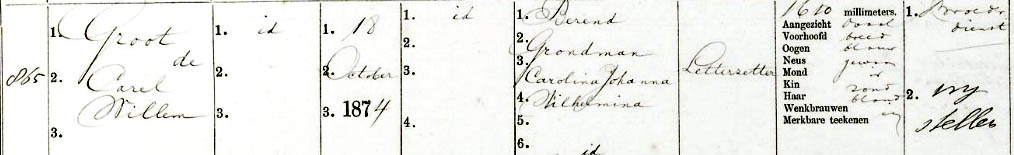 865
1. Groot
de
2. Carel
Willem
3.
1. id
2.
3.
1. 18
2. October
3. 1874
1. id
2.
3.
4.
1. Berend
2. Grondman
3. Carolina Johanna
4. Wilhelmina
5.
6. id
Lettersetter
1610 millimeters.
Aangezicht ovaal
Voorhoofd breed
Oogen blauw
Neus gewoon
Mond id
Kin rond
Haar blond
Wenkbrauwen id
Merkbare teekenen
1. Broeder
dienst
2. vry
stellen